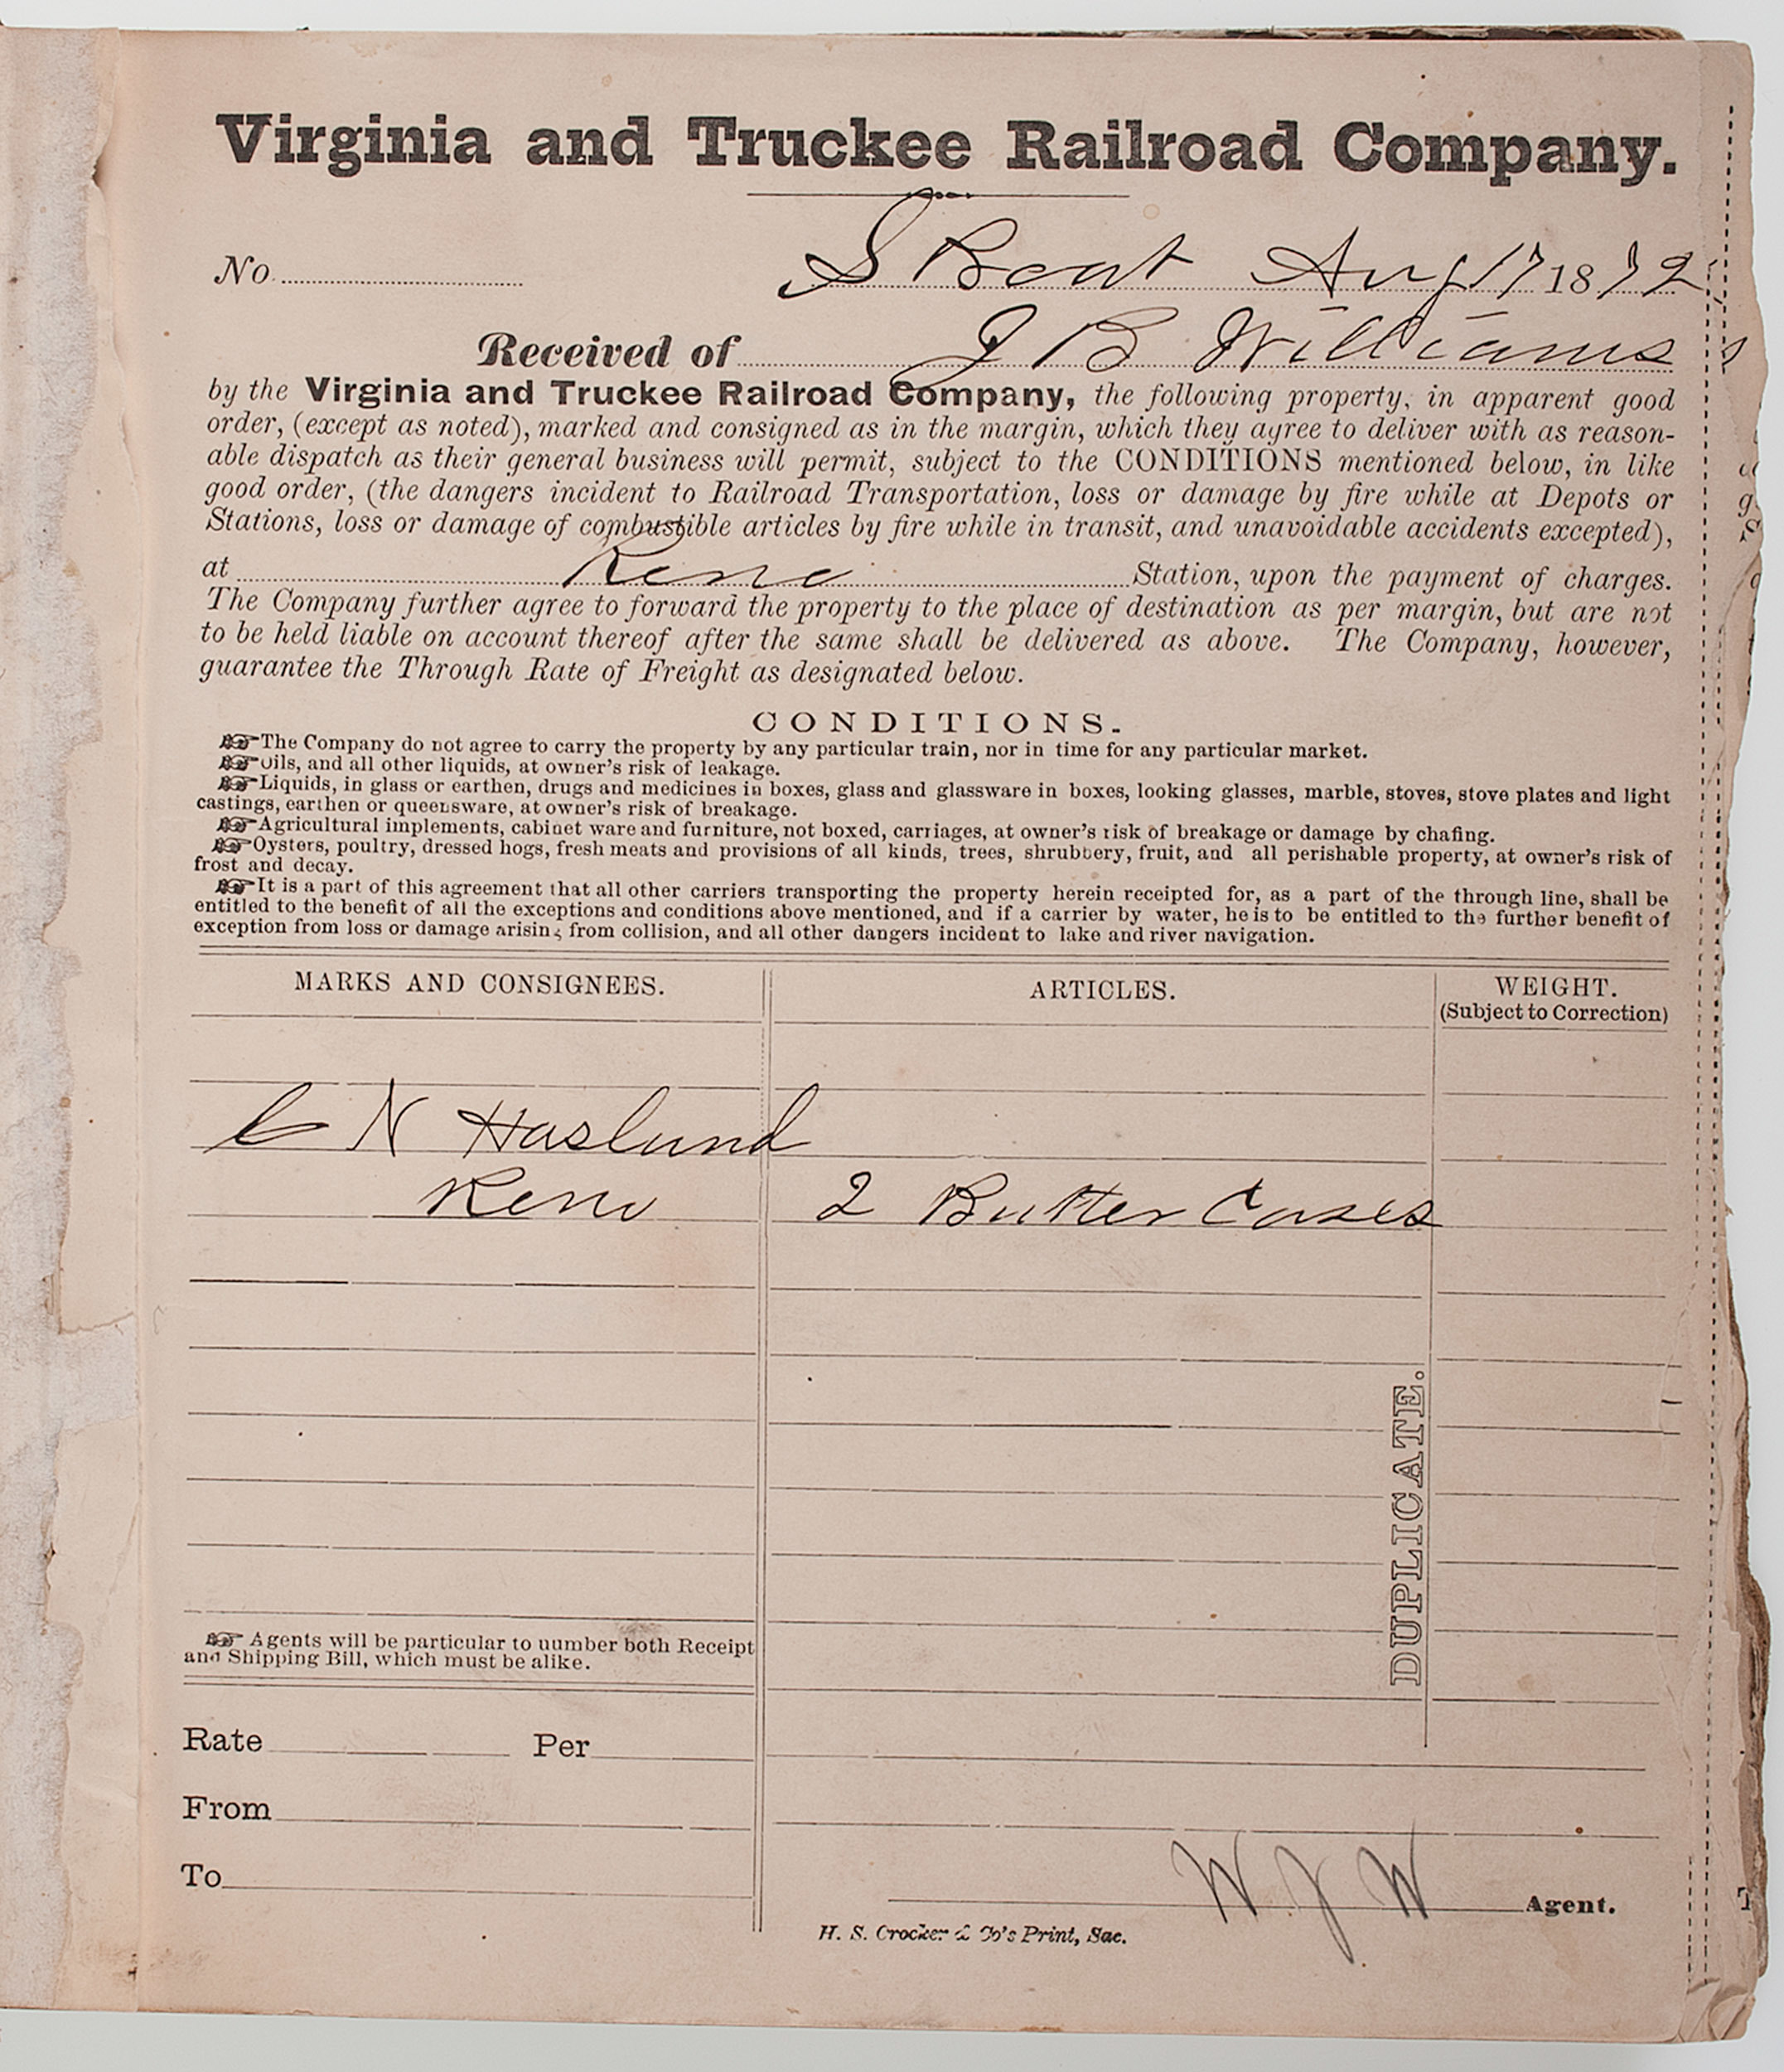 Virginia and Truckee Railroad Company.
No. S Boat Aug 17 1872
Received of J B Williams
by the Virginia and Truckee Railroad Company, the following property, in apparent good
order, (except as noted), marked and consigned as in the margin, which they agree to deliver with as reason-
able dispatch as their general business will permit, subject to the CONDITIONS mentioned below, in like
good order, (the dangers incident to Railroad Transportation, loss or damage by fire while at Depots or
Stations, loss or damage of combustible articles by fire while in transit, and unavoidable accidents excepted),
at Reno Station, upon the payment of charges.
The Company further agree to forward the property to the place of destination as per margin, but are not
to be held liable on account thereof after the same shall be delivered as above. The Company, however,
guarantee the Through Rate of Freight as designated below.
CONDITIONS.
☞The Company do not agree to carry the property by any particular train, nor in time for any particular market.
☞Oils, and all other liquids, at owner's risk of leakage.
☞Liquids, in glass or earthen, drugs and medicines in boxes, glass and glassware in boxes, looking glasses, marble, stoves, stove plates and light
castings, earthen or queensware, at owner's risk of breakage.
☞Agricultural implements, cabinet ware and furniture, not boxed, carriages, at owner's risk of breakage or damage by chafing.
☞Oysters, poultry, dressed hogs, fresh meats and provisions of all kinds, trees, shrubbery, fruit, and all perishable property, at owner's risk of
frost and decay.
☞It is a part of this agreement that all other carriers transporting the property herein receipted for, as a part of the through line, shall be
entitled to the benefit of all the exceptions and conditions above mentioned, and if a carrier by water, he is to be entitled to the further benefit of
exception from loss or damage arising from collision, and all other dangers incident to lake and river navigation.
MARKS AND CONSIGNEES. ARTICLES. WEIGHT.
(Subject to Correction)
C N Haslund
Reno 2 Butter Cases
DUPLICATE.
☞ Agents will be particular to number both Receipt
and Shipping Bill, which must be alike.
Rate Per
From
To
W J W Agent.
H. S. Crocker & Co's Print, Sac.